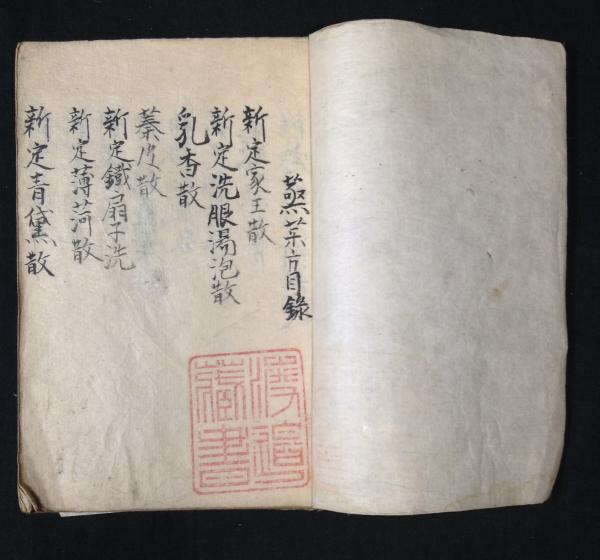 方目錄
新定家王散
新定洗眼湯泡散
乳香散
蓁皮散
新定鐵扇子洗
新定薄荷散
新定青黛散
渡邉
藏書